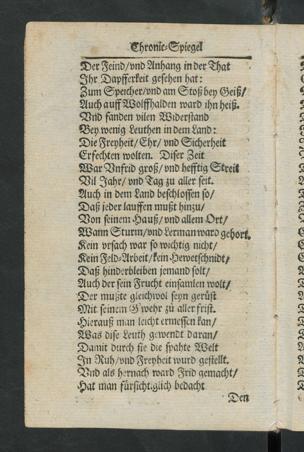 Chronic-Spiegel
Der Feind/vnd Anhang in der That
Ihr Dapfferkeit gesehen hat:
Zum Speicher/vnd am Stoß bey Geiß/
Auch auff Wolffhalden ward ihn heiß.
Vnd fanden vilen Widerstand
Bey wenig Leuthen in dem Land:
Die Freyheit/Ehr/vnd Sicherheit
Erfechten wolten. Diser Zeit
War Vnfrid groß/vnd hefftig Streit
Vil Jahr/vnd Tag zu aller seit.
Auch in dem Land beschlossen so/
Daß jeder lauffen mußt hinzu/
Von seinem Hauß/vnd allem Ort/
Wann Sturm/vnd Lerman ward gehört.
Kein vrsach war so wichtig nicht/
Kein Feld-Arbeit/kein Hewetschnidt/
Daß hinderbleiben jemand solt/
Auch der sein Frucht einsamlen wolt/
Der mußte gleichwol seyn gerüst
Mit seinem G'wehr zu aller frist.
Hierauß man leicht ermessen kan/
Was dise Leuth gewendt daran/
Damit durch sie die spahte Welt
In Ruh/vnd Freyheit wurd gestellt.
Vnd als hernach ward Frid gemacht/
Hat man fürsichtiglich bedacht
Den